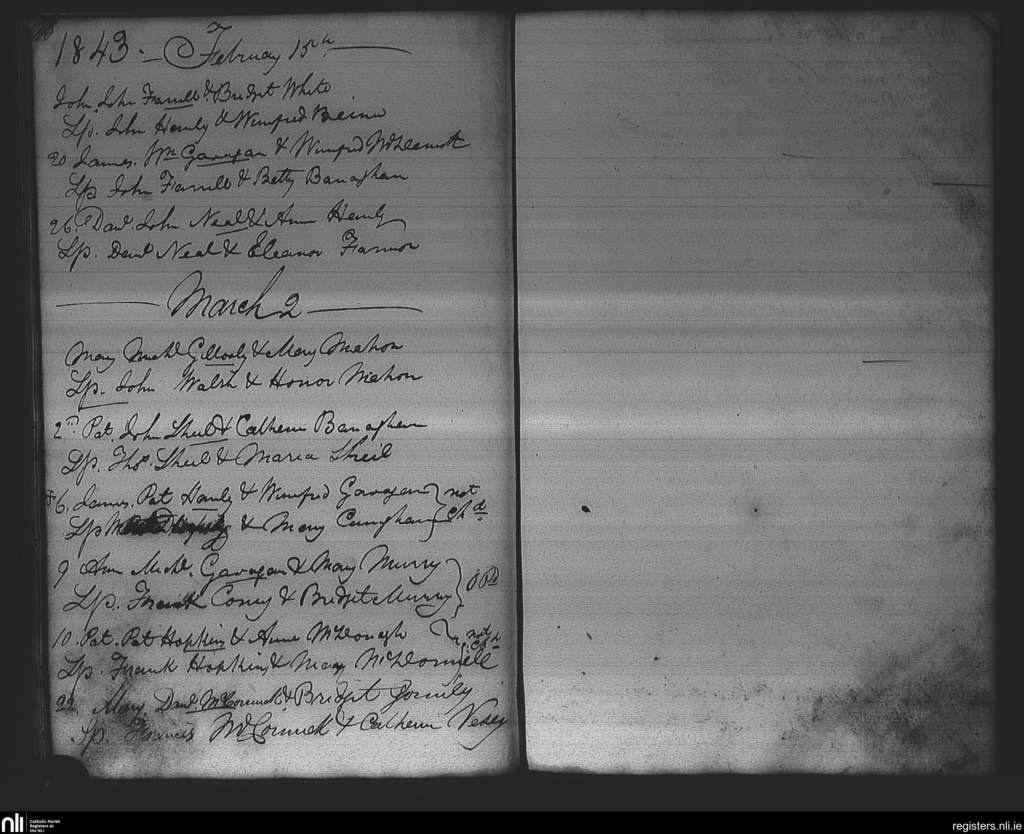 1843 - February 15th
John. John Farrell & Bridget White
Sp. John Hanly & Winifred Beirne
20 James. Wm Gavagan & Winifred McDermott
Sp John Farrell & Betty Banaghan
26. Danl. John Neal & Ann Hanly
Sp. Danl Neal & Eleanor Farmor
March 2
Mary Michl Gillooly & Mary Mahon
Sp. John Walsh & Honor Mahon
2nd Pat. John Sheil & Catherin Banaghan
Sp. Thos. Sheil & Maria Sheil
6. James. Pat Hanly & Winifred Gavagan } not
Sp & Mary Cunghan } chd.
9 Ann Michl. Gavagan & Mary Murry
Sp. Frank Conry & Bridget Murry } Pd
10. Pat. Pat Hopkins & Anne McDonagh } not
Sp. Frank Hopkins & Mary McDonnell
22 Mary Danl. McCormick & Bridget Gormly
Sp. Francis McCormick & Catherin Vesey
nli Catholic Parish Registers at the NLI
registers.nli.ie